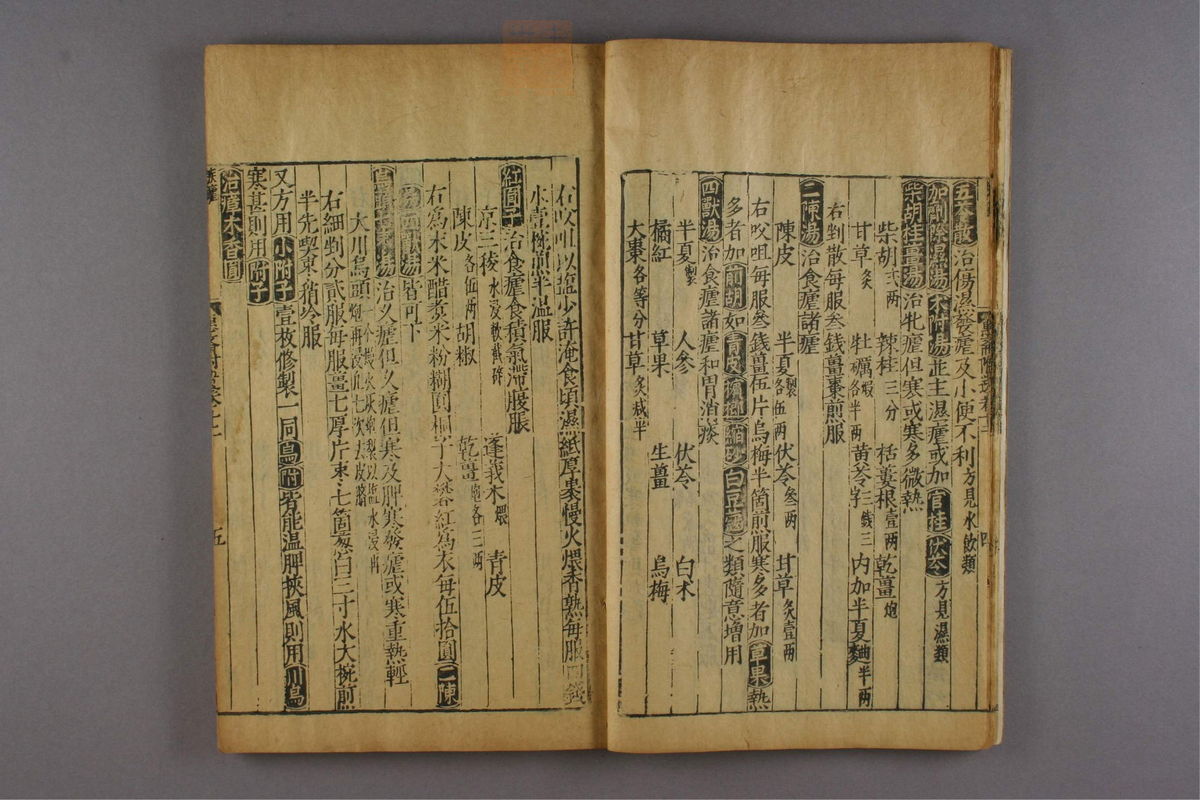 五苓散治傷濕發瘧及小便不利方見水飲類
加劑除濕湯朮附湯正主濕瘧或加官桂伏苓方見濕類
柴胡桂薑湯治牝瘧但寒或寒多微熱
柴胡弍两 辣桂三分 栝蔞根壹两 乾薑炮
甘草炙 牡礪煆各半两 黄芩三錢三字 内加半夏麯半两
右剉散每服叁錢薑棗煎服
二陳湯治食瘧諸瘧
陳皮 半夏製各伍两 伏苓叁两 甘草炙壹两
右㕮咀每服叁錢薑伍片烏梅半箇煎服寒多者加草果熱
多者加前胡如青皮檳榔縮砂白豆蔻之類隨意增用
四獸湯治食瘧諸瘧和胃消痰
半夏製 人參 伏苓 白朮
橘紅 草果 生薑 烏梅
大棗各等分 甘草炙減半
右㕮咀以塩少許淹食頃濕紙厚裹慢火煨香熟每服四錢
水壹椀煎半温服
紅圓子治食瘧食積氣滯腹脹
京三稜水浸軟截碎 蓬莪朮煨 青皮
陳皮各伍两 胡椒 乾薑炮各三两
右為末米醋煑米粉糊圓桐子大礬紅為衣每伍拾圓二陳
湯四獸湯皆可下
治久瘧但久瘧但寒及脾寒發瘧或寒重熱輕
大川烏頭
右細剉分貳服每服薑七厚片棗七箇葱白三寸水大椀煎
半先契棗稍冷服
又方用小附子壹枚修製一同烏附皆能温脾挾風則用川烏
寒甚則用附子
治瘧木香圓